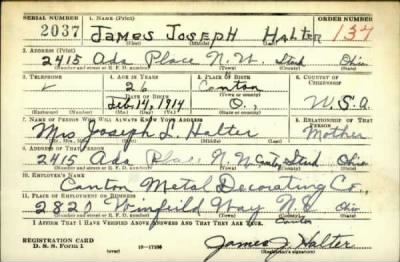 SERIAL NUMBER 1. NAME (Print) ORDER NUMBER
2037 JAMES JOSEPH HALTER 137
(First) (Middle) (Last)
2. ADDRESS (Print)
2415 Ada Place N.W. Stark Ohio
(Number and street or R. F. D. number) (Town) (County) (State)
3. TELEPHONE 4. AGE IN YEARS 5. PLACE OF BIRTH 6. COUNTRY OF CITIZENSHIP
26 Canton
DATE OF BIRTH (Town or county)
Feb. 14, 1914 O., U.S.A.
(Exchange) (Number) (Mo.) (Day) (Yr.) (State or country)
7. NAME OF PERSON WHO WILL ALWAYS KNOW YOUR ADDRESS 8. RELATIONSHIP OF THAT PERSON
Mrs Joseph L. Halter Mother
(Mr., Mrs., Miss) (First) (Middle) (Last)
9. ADDRESS OF THAT PERSON
2415 Ada Place N.W. Canton Stark Ohio
(Number and street or R. F. D. number) (Town) (County) (State)
10. EMPLOYER'S NAME
Canton Metal Decorating Co.,
11. PLACE OF EMPLOYMENT OR BUSINESS
2820 Winfield Way N.E. Ohio
(Number and street or R. F. D. number) (Town) (County) (State)
I AFFIRM THAT I HAVE VERIFIED ABOVE ANSWERS AND THAT THEY ARE TRUE. Canton
REGISTRATION CARD
D. S. S. FORM 1 (over) James J Halter
(Registrant's signature)